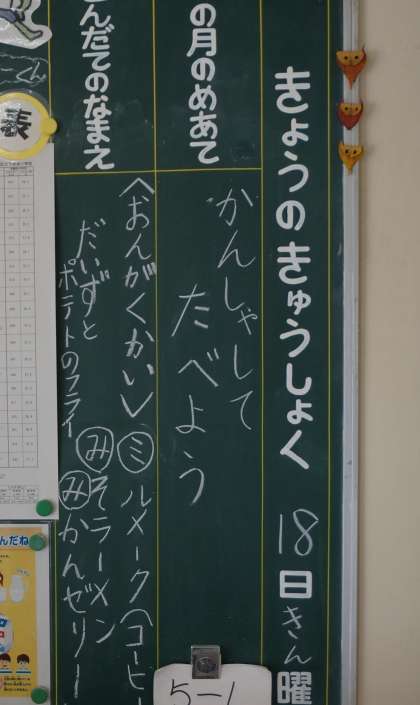 きょうのきゅうしょく 18日きん曜
の月のめあて
かんしゃして
たべよう
んだてのなまえ
〈おんがくかい〉
ミルメーク(コーヒー
だいずと
ポテトのフライ
みそラーメン
みかんゼリー
5-1
ーくん
表
んだね